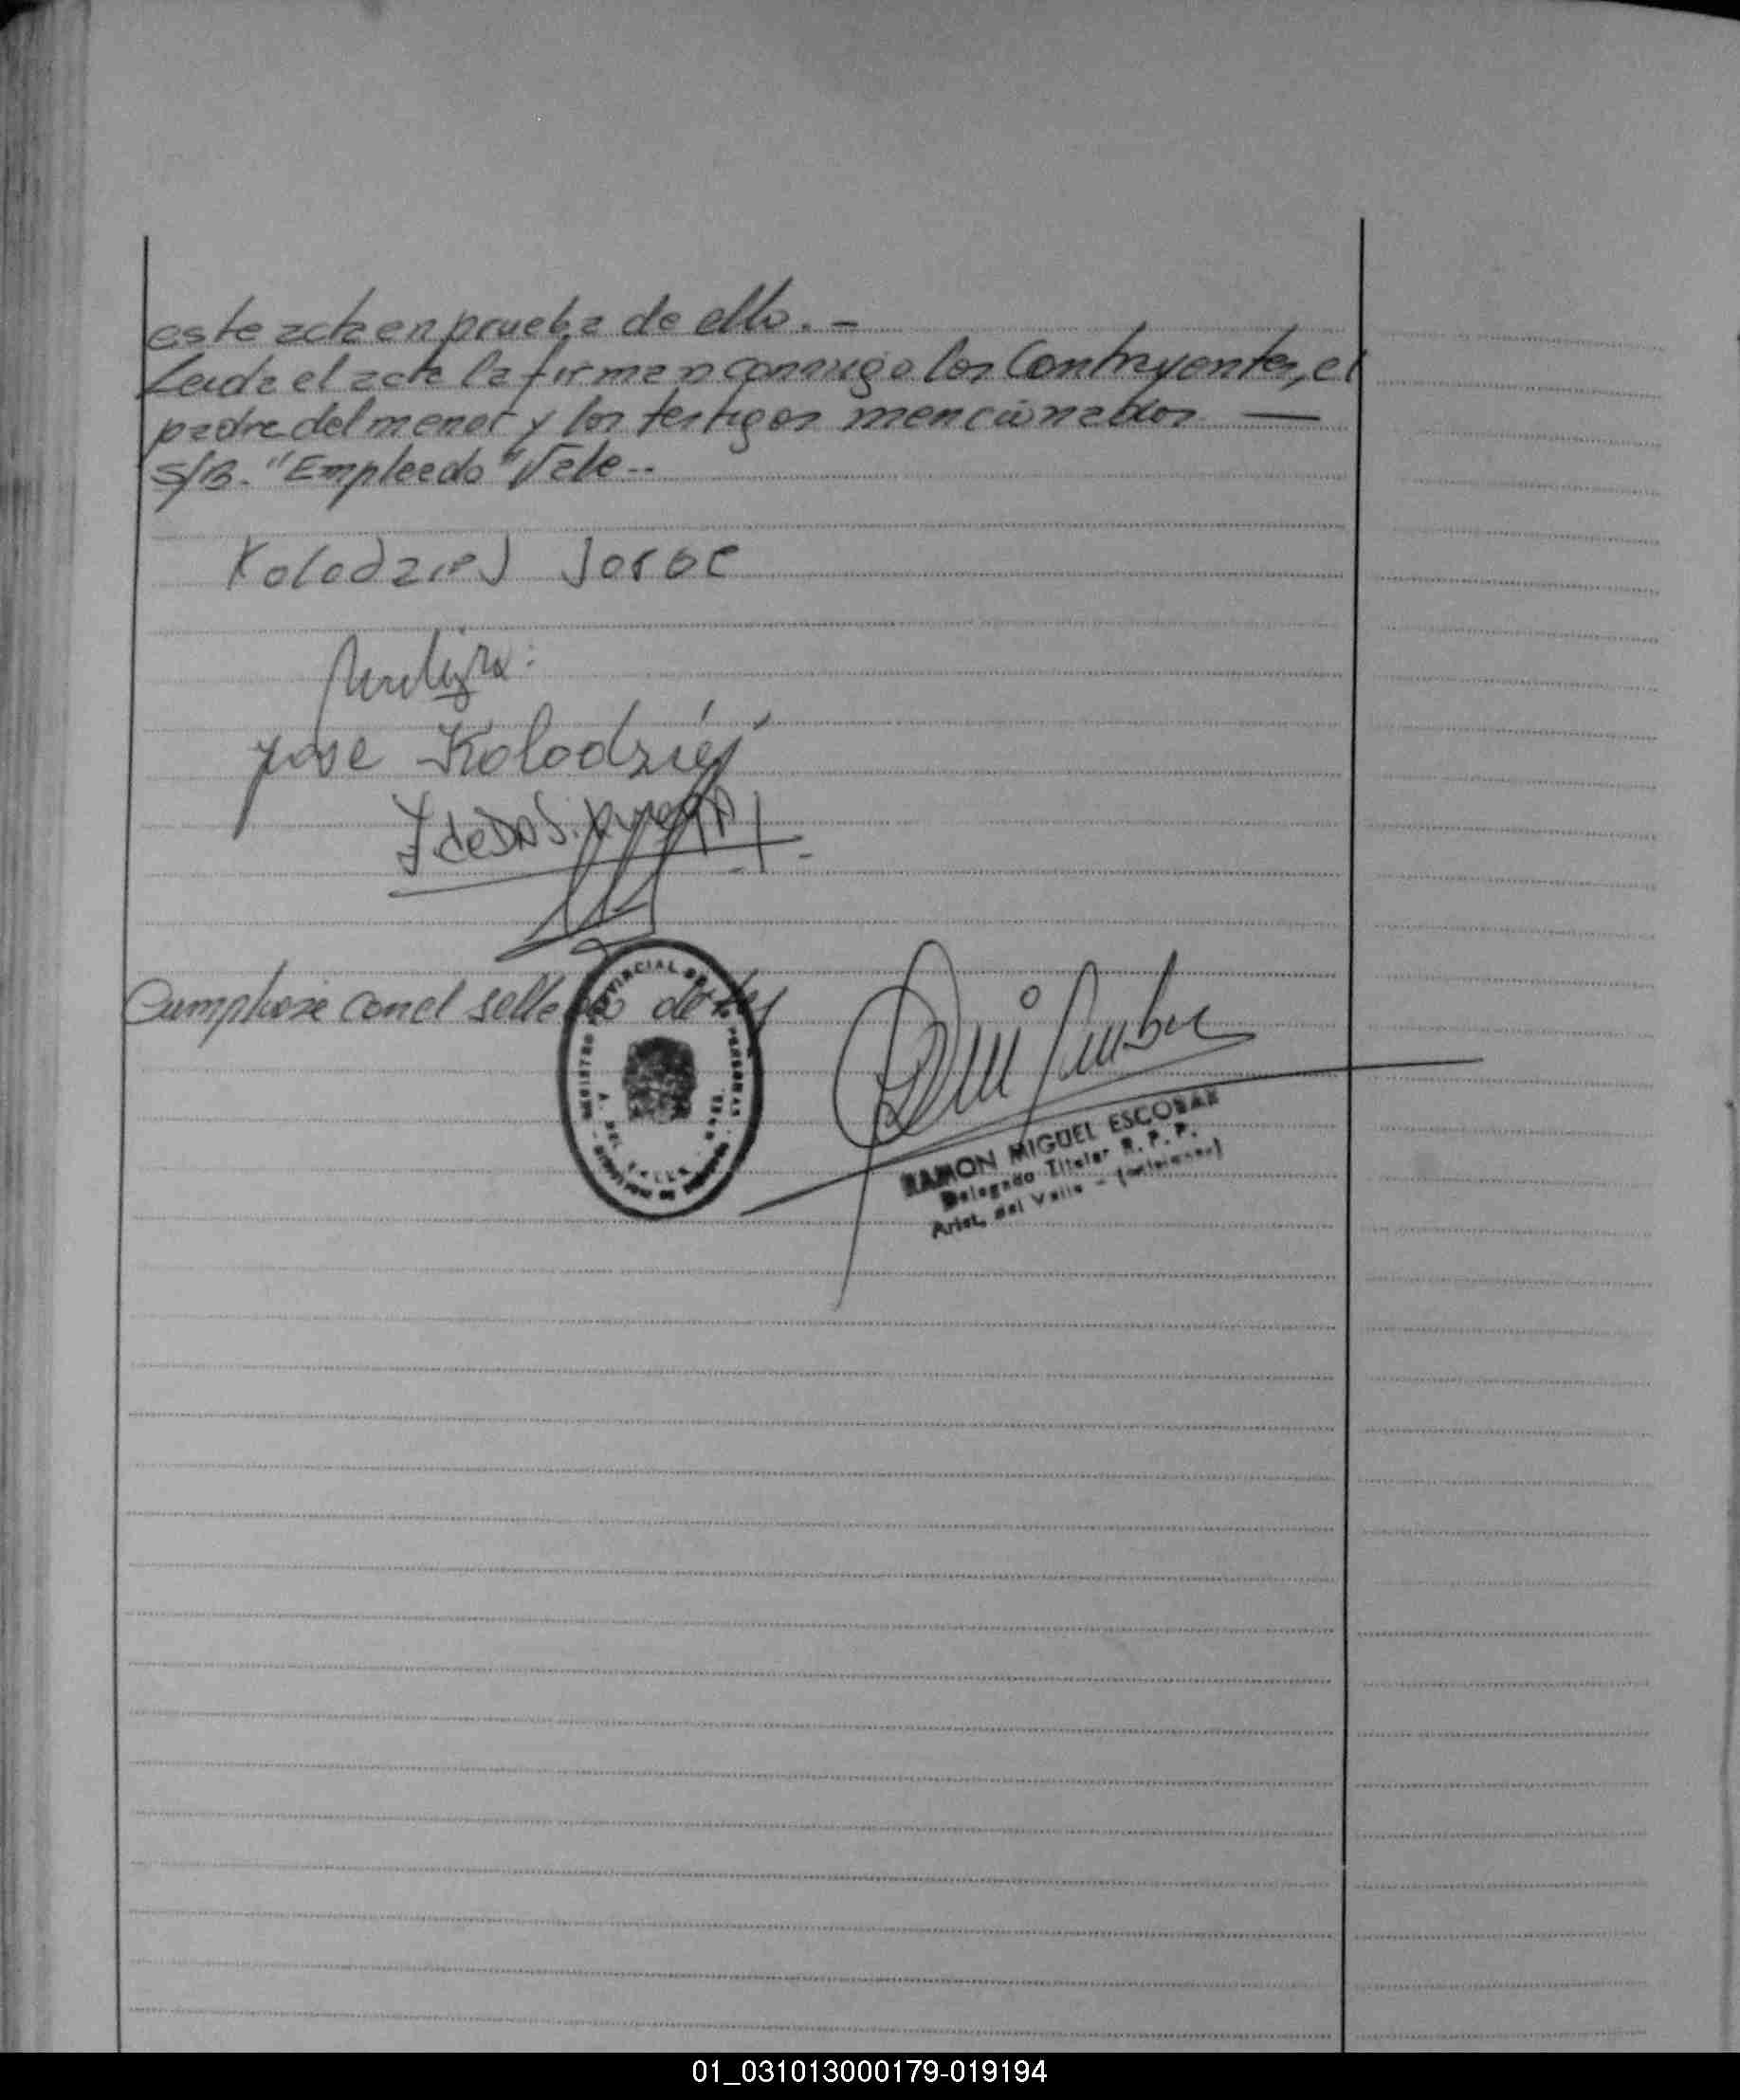 este acta en prueba de ello. -
Leida el acta la firman conmigo los Contrayentes, el
padre del menor y los testigos mencionados. —
S/B. "Empleado" Vale. -
Kolodziej Jorge
José Kolodziej
Cumplase con el sellado de ley
REGISTRO PROVINCIAL DE LAS PERSONAS
A. DEL VALLE - MNES.
RAMON MIGUEL ESCOBAR
Delegado Titular R. P. P.
Arist. del Valle - (Misiones)
01_031013000179-019194